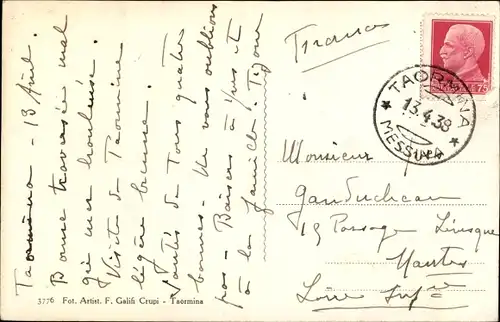 Taormina - 13 Avril.
Bonne traversée mal
gré mer houleuse.
Visite de Taormine
légère brume.
Santés de Tous quatre
bonnes - Ne vous oublions
pas - Baisers à tous et
à la famille
France
TAORMINA
13.4.38
MESSINA
Monsieur
Gauducheau
15 Passage Lévesque
Nantes
Loire Infre
3776 Fot. Artist. F. Galifi Crupi - Taormina